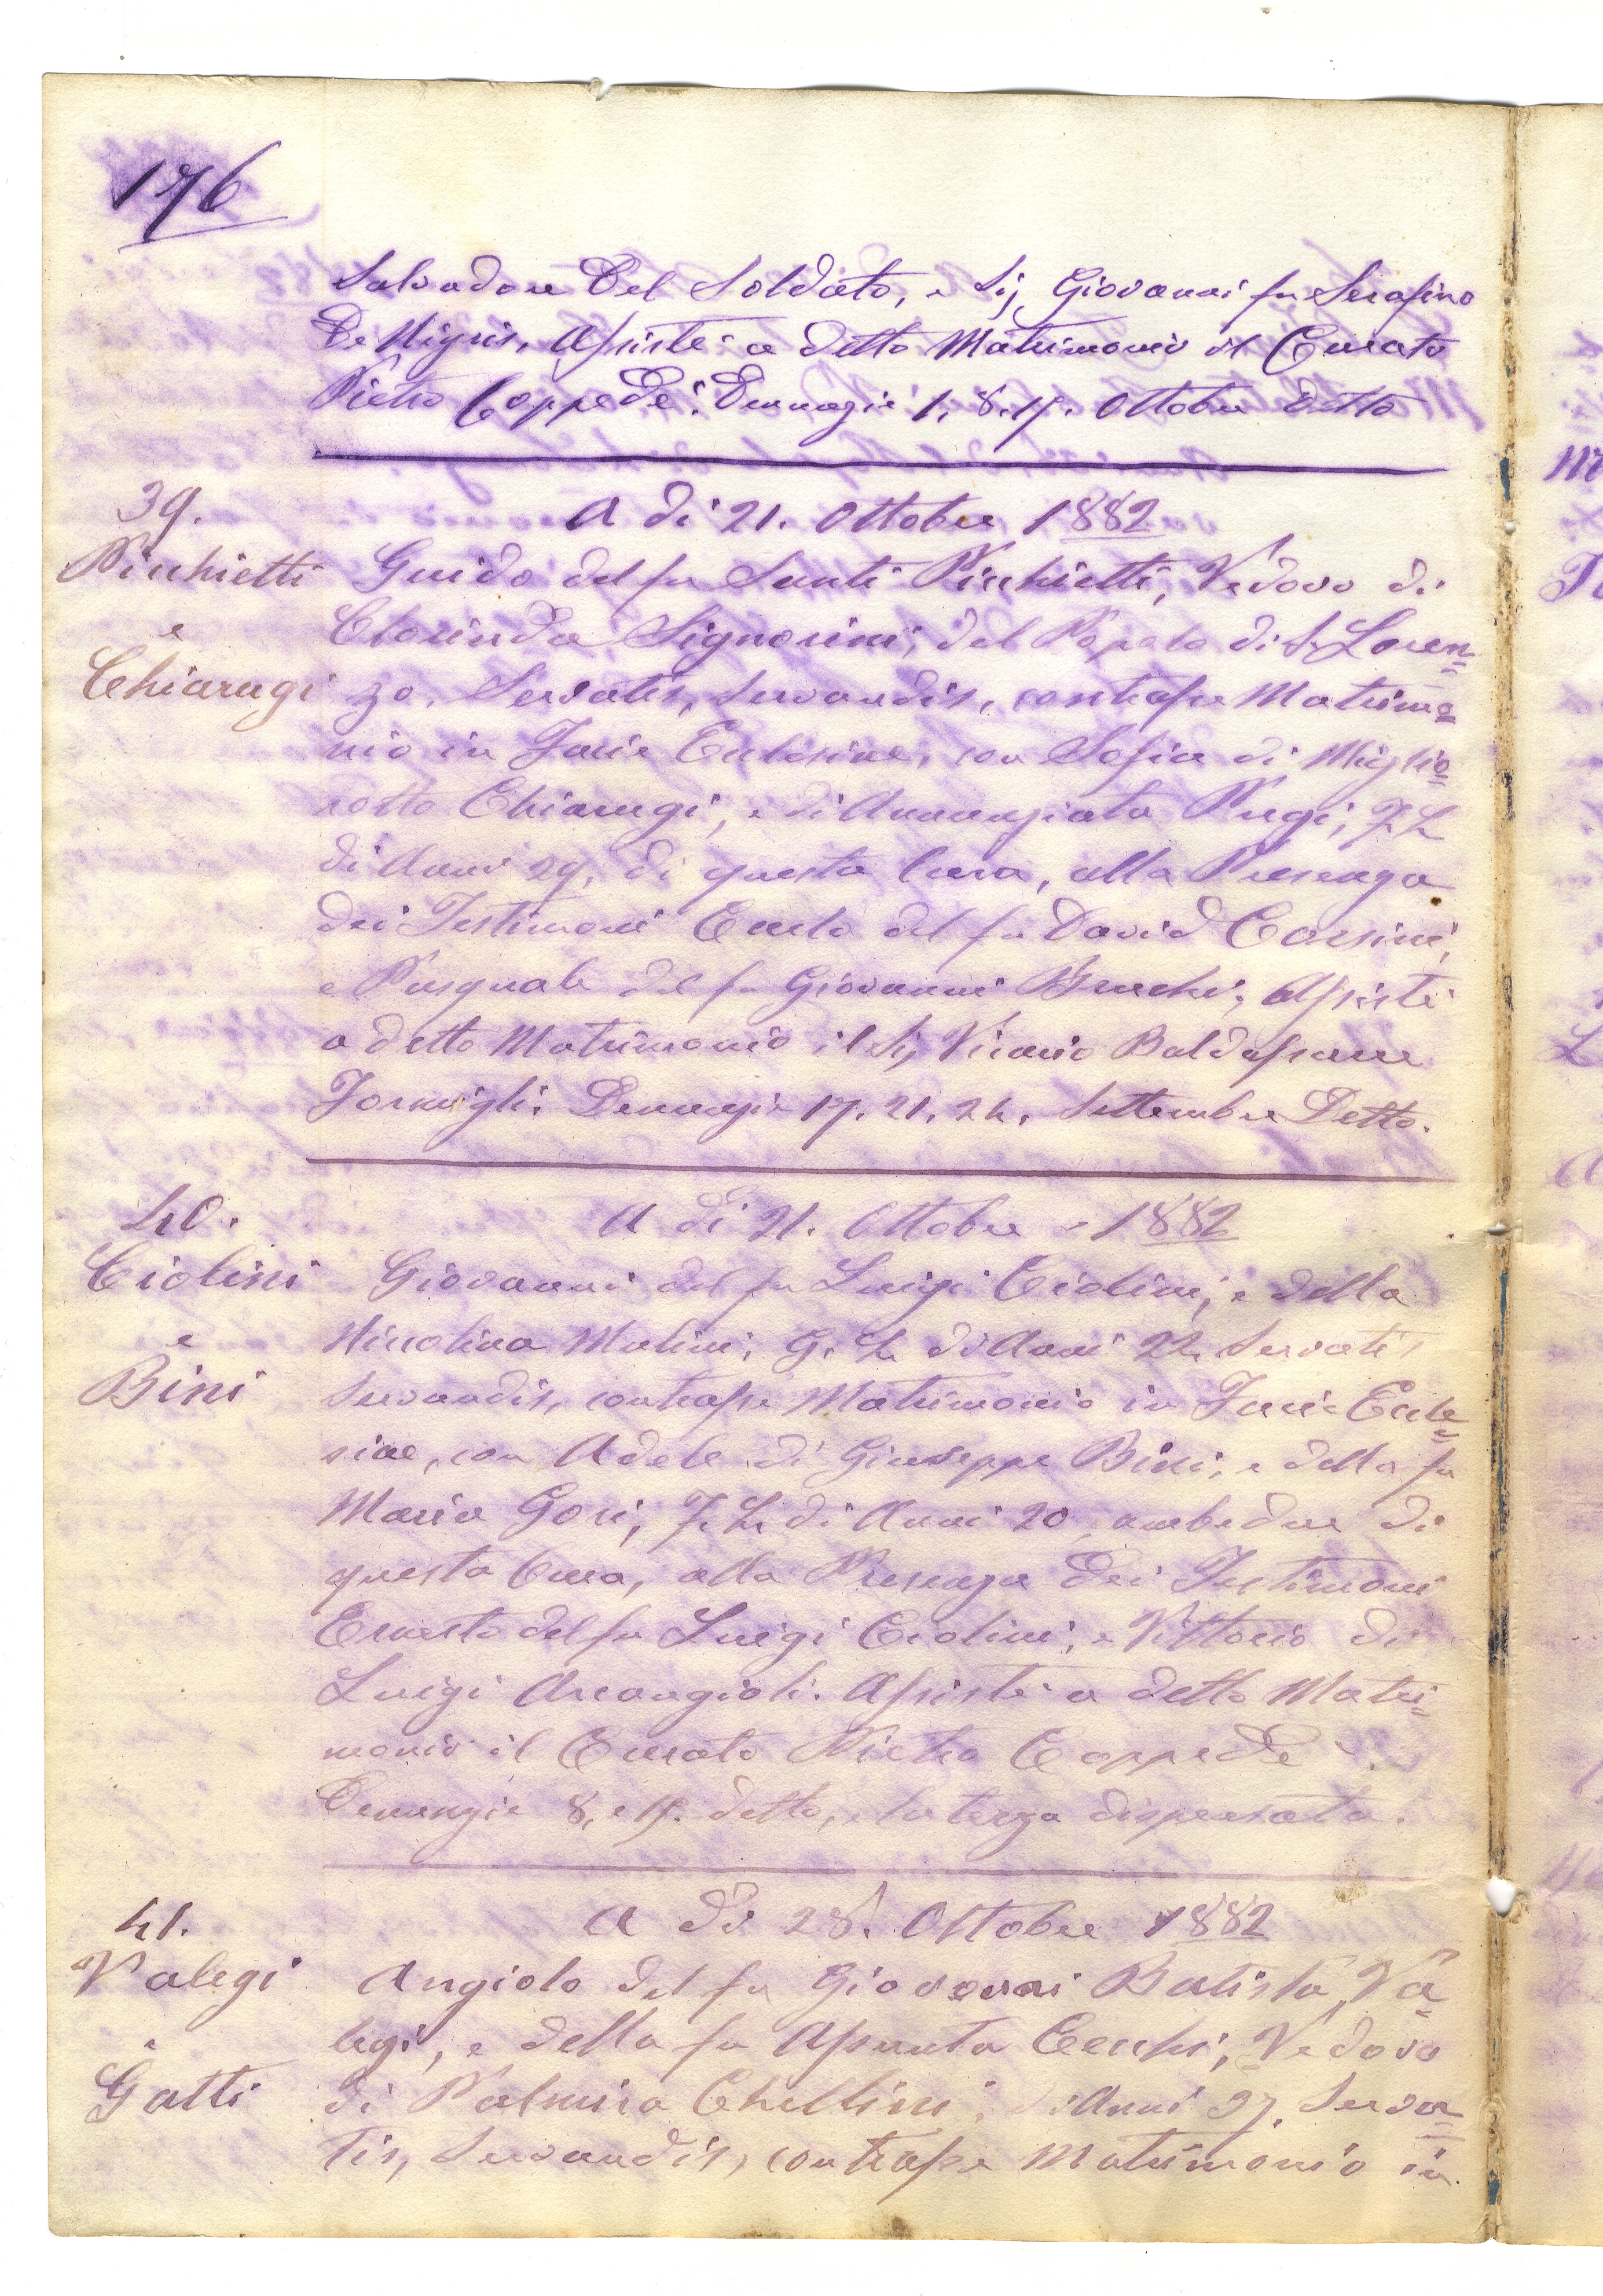 176
Salvadore Del Soldato, e Sig Giovanni fu Serafino
De Nigris, Assistè a detto Matrimonio il Curato
Pietro Coppedè. Denunzie 1. 8. 15. Ottobre detto
39.
A dì 21. Ottobre 1882
Picchietti
e
Chiarugi
Guido del fu Santi Picchietti, Vedovo di
Clorinda Signorini, del Popolo di S. Loren=
zo. Servatis, servandis, contrasse Matrimo=
nio in Facie Eclesiae, con Sofia di Miglio=
rotto Chiarugi, e di Annunziata Pugi, F. L
di Anni 29, di questa Cura, alla Presenza
dei Testimoni Carlo del fu David Corsini,
e Pasquale del fu Giovanni Bruchi, Assistè
a detto Matrimonio il Sig Vicario Baldassarre
Formigli. Denunzie 17. 21. 24. Settembre Detto.
40.
A dì 21. Ottobre 1882
Ciolini
e
Bini
Giovanni del fu Luigi Ciolini, e della
Niccolina Mulini, G. L. di Anni 22 Servatis
servandis, contrasse Matrimonio in Facie Ecle=
siae, con Adele di Giuseppe Bini, e della fu
Maria Gori, F. L. di Anni 20 ambedue di
questa Cura, alla Presenza dei Testimoni
Ernesto del fu Luigi Ciolini, e Vittorio di
Luigi Arcangioli. Assistè a detto Matri=
monio il Curato Pietro Coppedè.
Denunzie 8, e 15. detto, e la terza dispensata.
41.
A dì 28. Ottobre 1882
Valegi
e
Gatti
Angiolo del fu Giovanni Batista Va=
legi, e della fu Assunta Cecchi, Vedovo
di Palmira Chellini, di Anni 37. Serva=
tis, Servandis, contrasse Matrimonio in